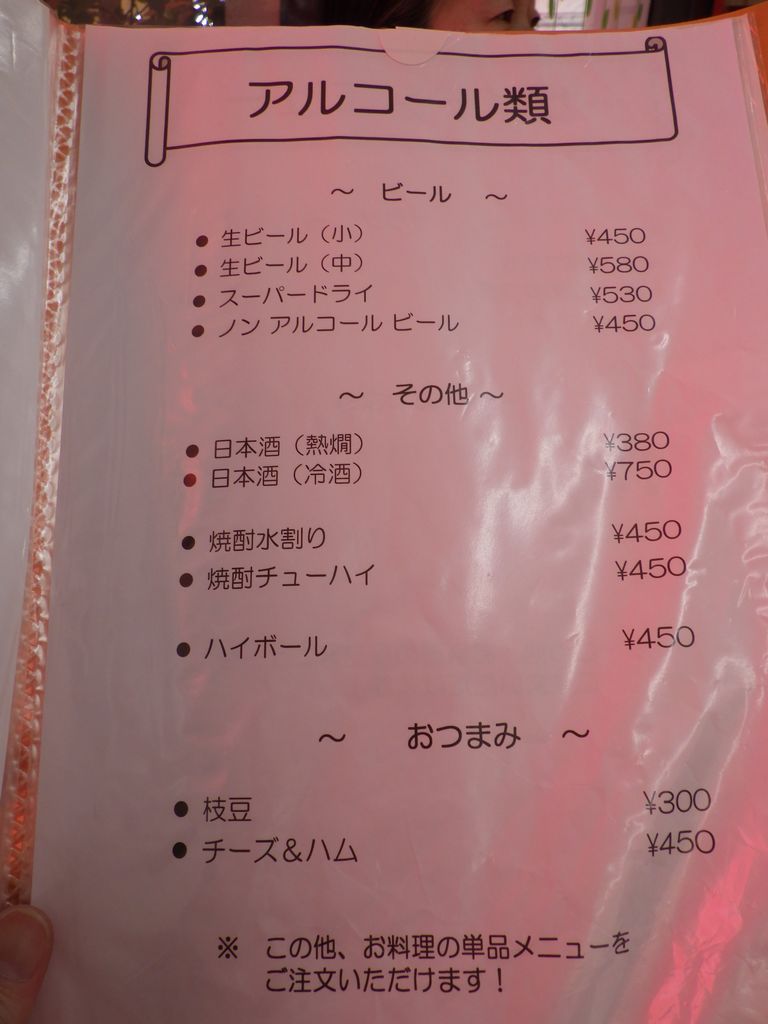 アルコール類
～ ビール ～
● 生ビール（小） ¥450
● 生ビール（中） ¥580
● スーパードライ ¥530
● ノン アルコール ビール ¥450
～ その他 ～
● 日本酒（熱燗） ¥380
● 日本酒（冷酒） ¥750
● 焼酎水割り ¥450
● 焼酎チューハイ ¥450
● ハイボール ¥450
～ おつまみ ～
● 枝豆 ¥300
● チーズ＆ハム ¥450
※ この他、お料理の単品メニューを
ご注文いただけます！